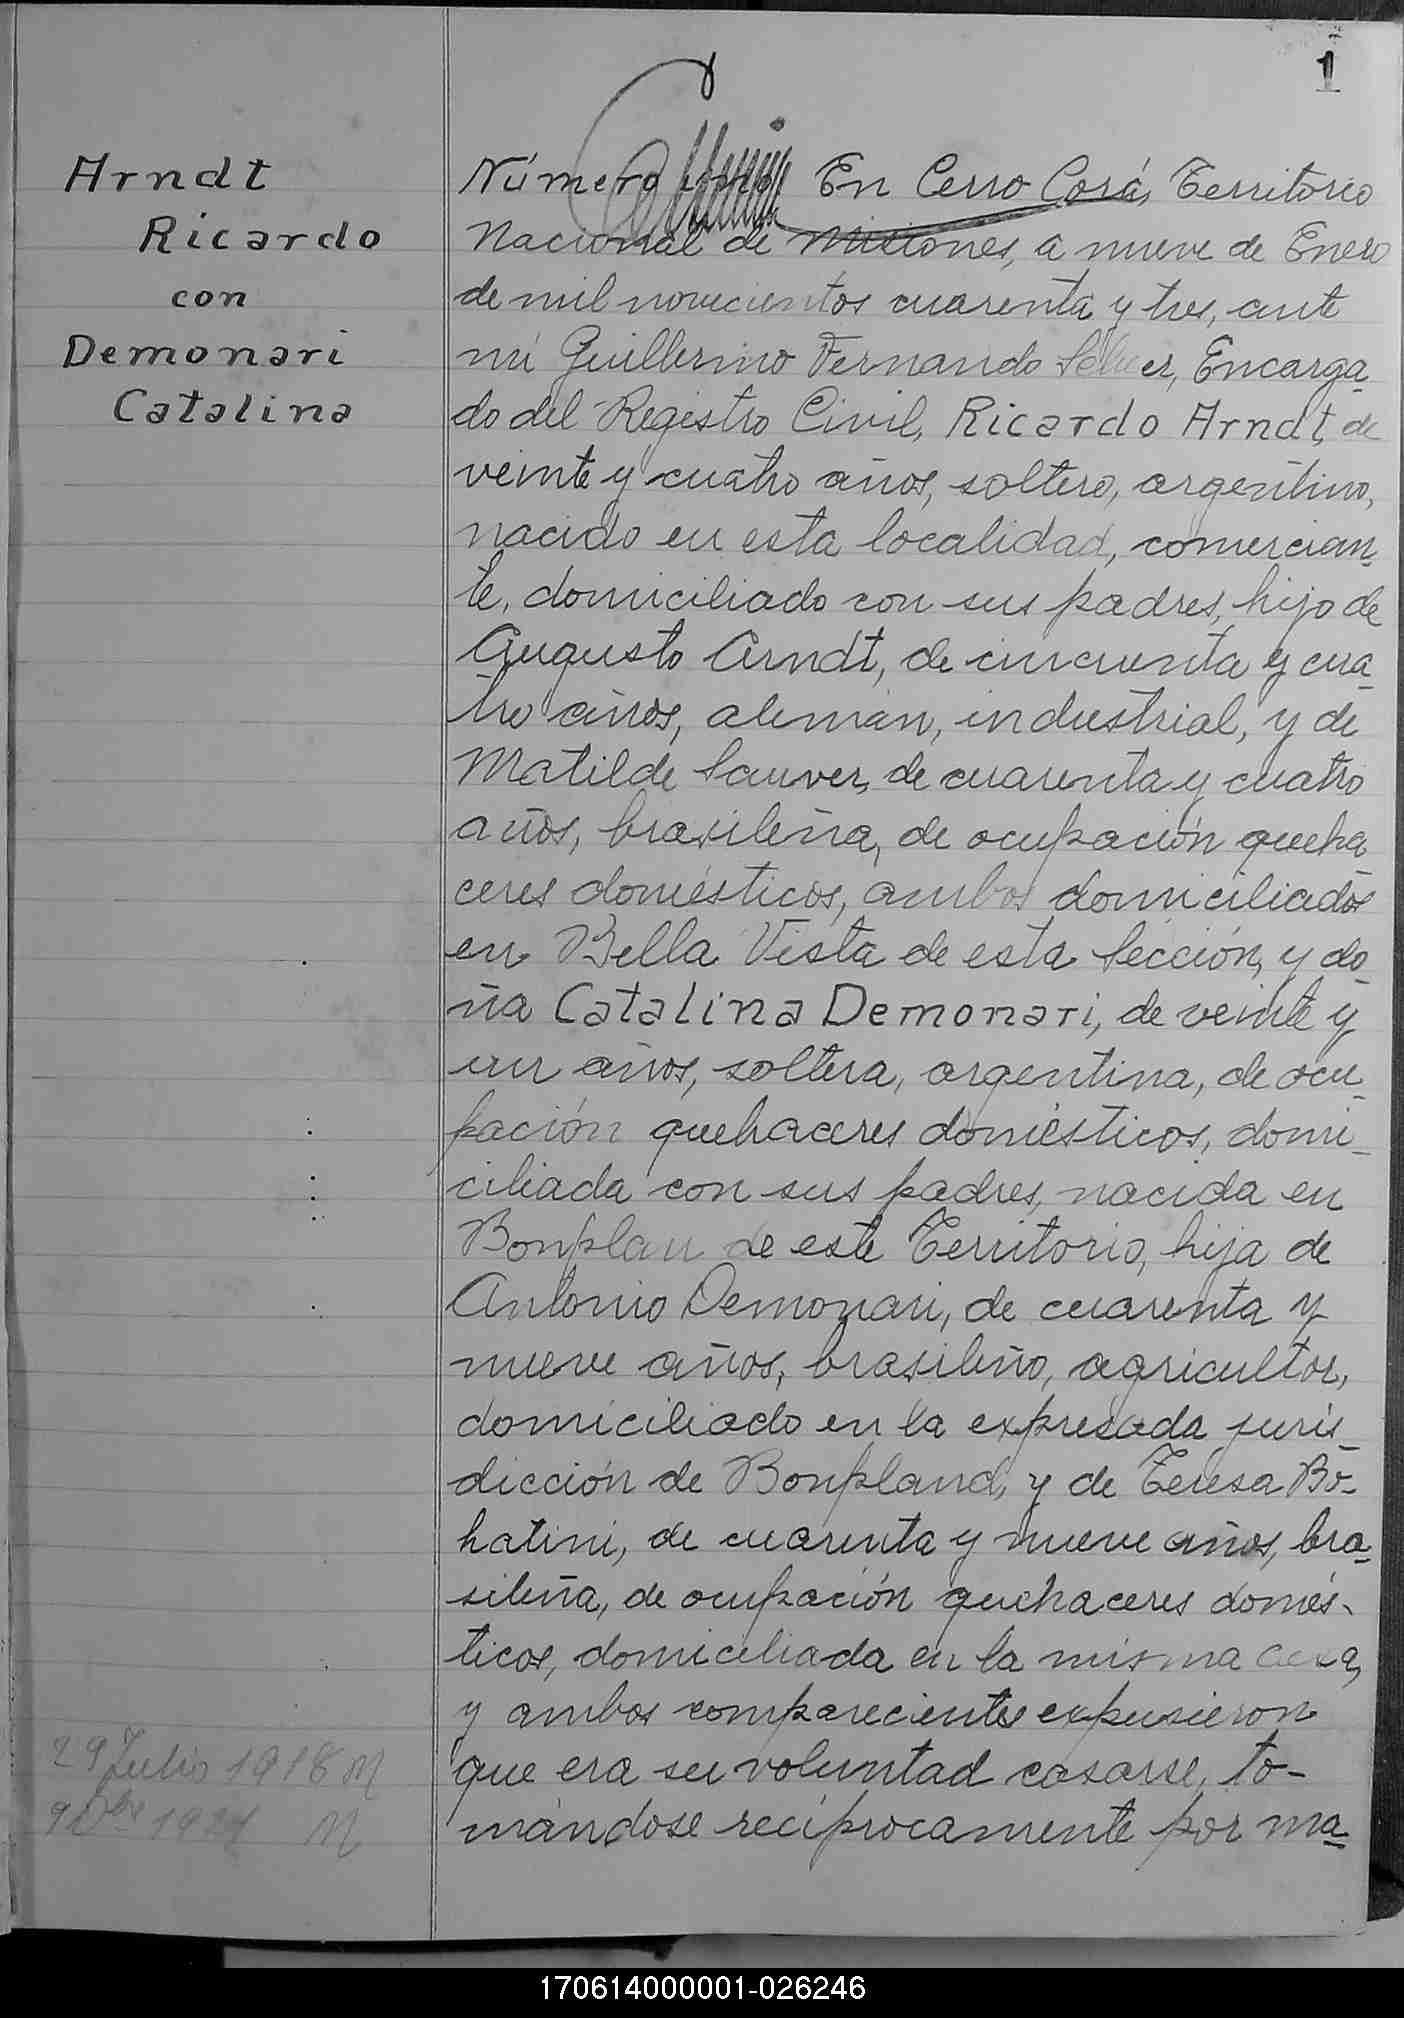 1
Arndt
Ricardo
con
Demonari
Catalina
Número En Cerro Corá, Territorio
Nacional de Misiones, a nueve de Enero
de mil novecientos cuarenta y tres, ante
mí Guillermo Fernando Encarga_
do del Registro Civil, Ricardo Arndt, de
veinte y cuatro años, soltero, argentino,
nacido en esta localidad, comercian_
te, domiciliado con sus padres, hijo de
Augusto Arndt, de cincuenta y cua_
tro años, alemán, industrial, y de
Matilde Sauver, de cuarenta y cuatro
años, brasileña, de ocupación queha
ceres domésticos, ambos domiciliados
en Bella Vista de esta Sección, y do
ña Catalina Demonari, de veinte y
un años, soltera, argentina, de ocu_
pación quehaceres domésticos, domi_
ciliada con sus padres, nacida en
Bonplan de este Territorio, hija de
Antonio Demonari, de cuarenta y
nueve años, brasileño, agricultor,
domiciliado en la expresada juris_
dicción de Bonpland, y de Teresa Bo-
hatini, de cuarenta y nueve años, bra_
sileña, de ocupación quehaceres domés-
ticos, domiciliada en la misma casa,
y ambos comparecientes expusieron
que era su voluntad casarse, to-
mándose recíprocamente por ma_
29 Julio 1918 M
9 Dbre 1921 M
170614000001-026246